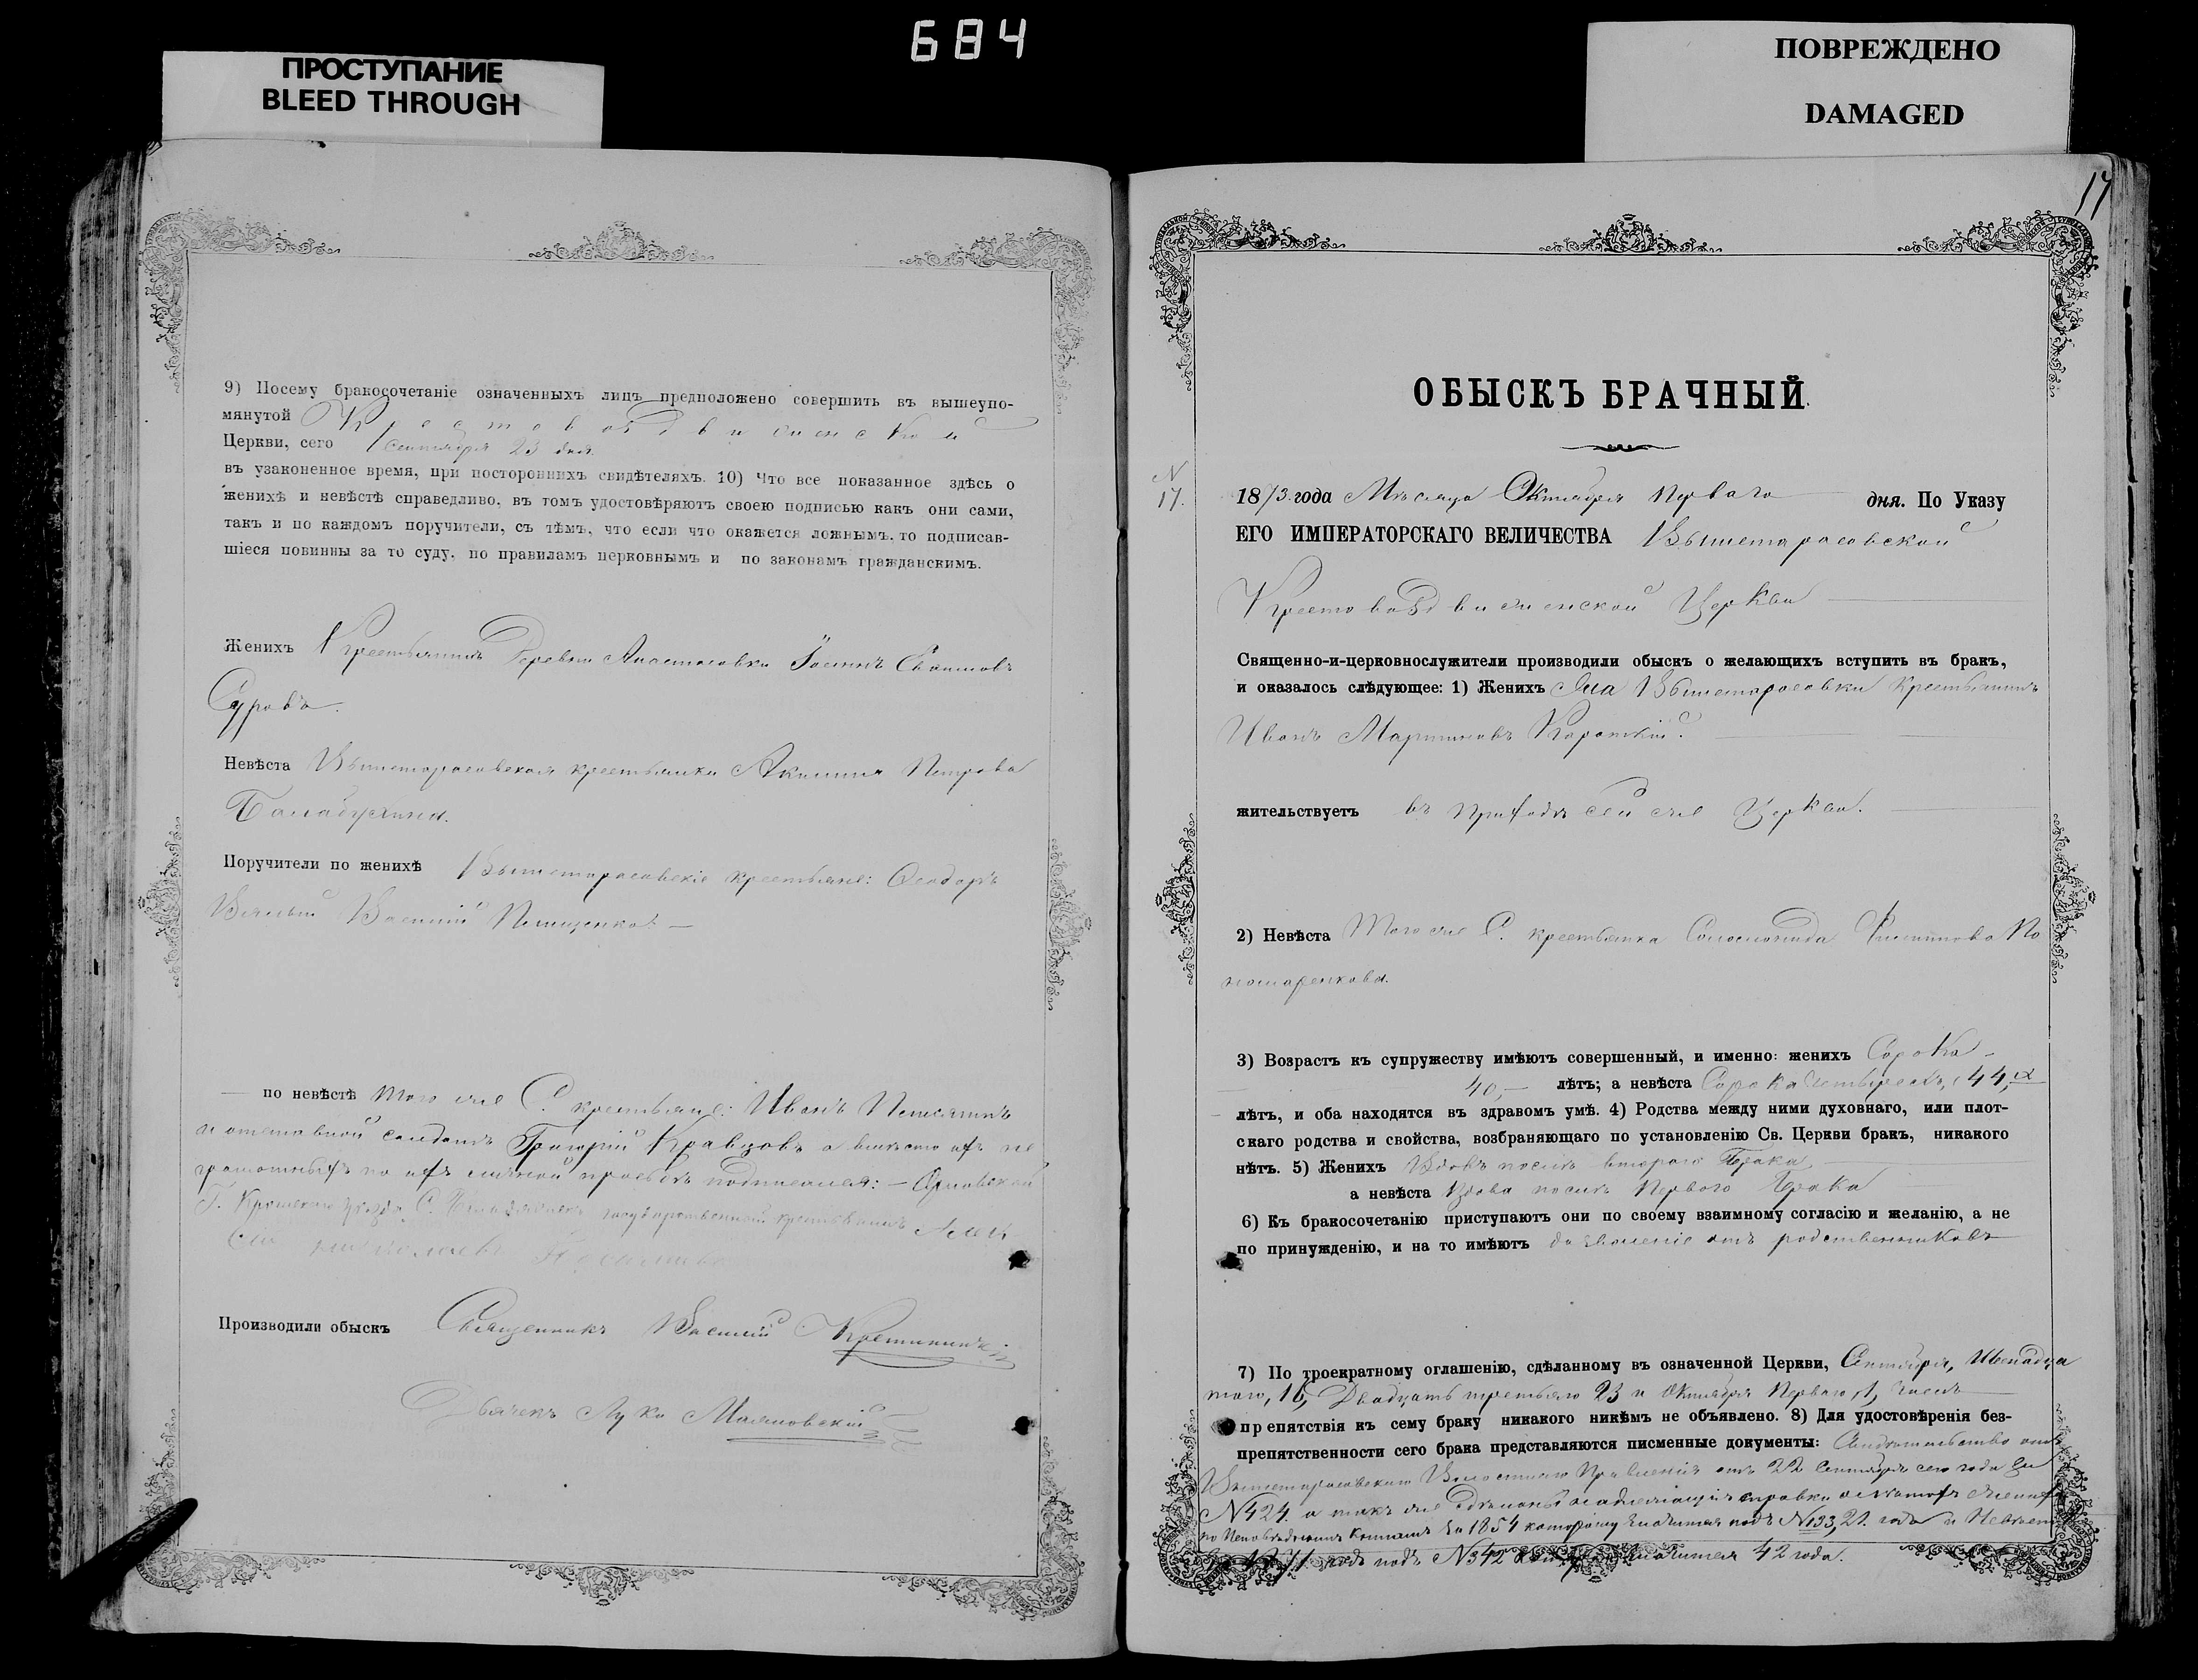 684
ПРОСТУПАНИЕ
BLEED THROUGH
ПОВРЕЖДЕНО
DAMAGED
9) Посему бракосочетаніе означенныхъ лицъ предположено совершить въ вышеупо-
мянутой Крестовоздвиженской
Церкви, сего Сентября 23 дня
въ узаконенное время, при постороннихъ свидѣтеляхъ. 10) Что все показанное здѣсь о
женихѣ и невѣстѣ справедливо, въ томъ удостовѣряютъ своею подписью какъ они сами,
такъ и по каждомъ поручители, съ тѣмъ, что если что окажется ложнымъ, то подписав-
шіеся повинны за то суду, по правиламъ церковнымъ и по законамъ гражданскимъ.
Женихъ Крестьянинъ Деревни Анастасовки Іоаннъ
Суровъ.
Невѣста Вышетарасовская крестьянка Акилина Петрова
Поручители по женихѣ Вышетарасовскіе крестьяне: Ѳеодоръ
Василій
по невѣстѣ того же С. крестьяне: Иванъ
и отставной солдатъ Григорій Кравцовъ а вмѣсто ихъ не
грамотныхъ по ихъ личной прозьбѣ подписался: – Орловской
Г. уѣзда С. государственный крестьянинъ
Производили обыскъ Священникъ Василій
Дьячекъ Лука Маляновскій
17
ОБЫСКЪ БРАЧНЫЙ.
N
17.
1873 года Мѣсяца Октября перваго дня. По Указу
ЕГО ИМПЕРАТОРСКАГО ВЕЛИЧЕСТВА Вышетарасовской
Крестовоздвиженской Церкви
Священно-и-церковнослужители производили обыскъ о желающихъ вступить въ бракъ,
и оказалось слѣдующее: 1) Женихъ Села Вышетарасовки Крестьянинъ
Иванъ Мартиновъ Короткій.
жительствуетъ въ приходѣ сей же Церкви.
2) Невѣста Того же С. крестьянка Соломонида Филиппова По
номаренкова.
3) Возрастъ къ супружеству имѣютъ совершенный, и именно: женихъ Сорока
40, лѣтъ; а невѣста Сорока четырехъ, 44,
лѣтъ, и оба находятся въ здравомъ умѣ. 4) Родства между ними духовнаго, или плот-
скаго родства и свойства, возбраняющаго по установленію Св. Церкви бракъ, никакого
нѣтъ. 5) Женихъ Вдовъ послѣ втораго брака
а невѣста вдова послѣ перваго брака
6) Къ бракосочетанію приступаютъ они по своему взаимному согласію и желанію, а не
по принужденію, и на то имѣютъ дозволеніе отъ родственниковъ
7) По троекратному оглашенію, сдѣланному въ означенной Церкви, Сентября, Шеснадца
таго, 16, Двадцать третьяго 23 и Октября перваго, 1, чиселъ
препятствія къ сему браку никакого никѣмъ не объявлено. 8) Для удостовѣренія без-
препятственности сего брака представляются писменные документы: Свидѣтельство отъ
Вышетарасовскаго Волостнаго Правленія отъ 22 Сентября сего года за
N 424. а такъ же сдѣланы надлежащія справки о лѣтахъ жениха
по Исповѣднымъ книгамъ за 1854 которому значится подъ N 133, 21. годъ и Невѣсты
годъ подъ N 342 значится 42 года.